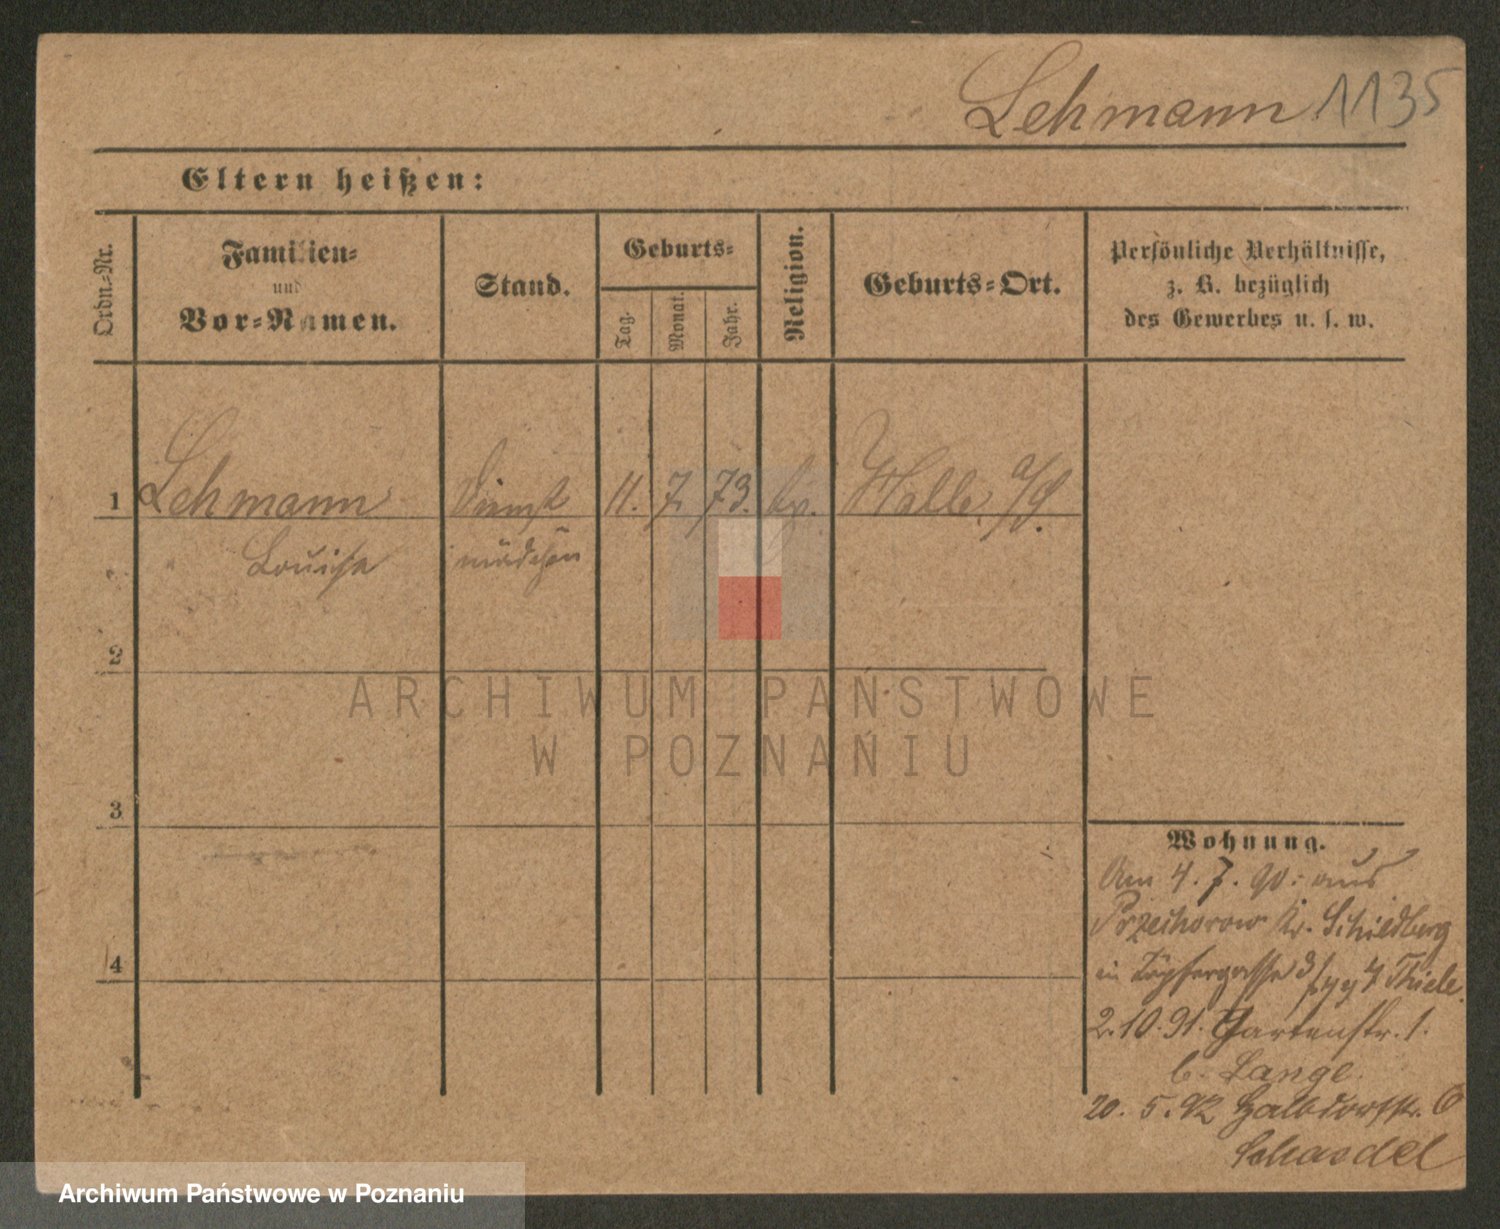 Lehmann 1135
Eltern heißen:
Ordn.-Nr.
Familien-
und
Vor-Namen.
Stand.
Geburts-
Tag.
Monat.
Jahr.
Religion.
Geburts-Ort.
Persönliche Verhältnisse,
z. B. bezüglich
des Gewerbes u. s. w.
1 Lehmann Dienst 11. 7. 73. Halle a/S.
Louise mädchen
2
3
4
Wohnung.
Am 4. 7. 90. aus
Kr. Schildberg
in Töpfergasse 3 Thiele.
2. 10. 91. Gartenstr. 1.
b. Lange.
20. 5. 92 Halbdorfstr. 6
ARCHIWUM PAŃSTWOWE
W POZNANIU
Archiwum Państwowe w Poznaniu